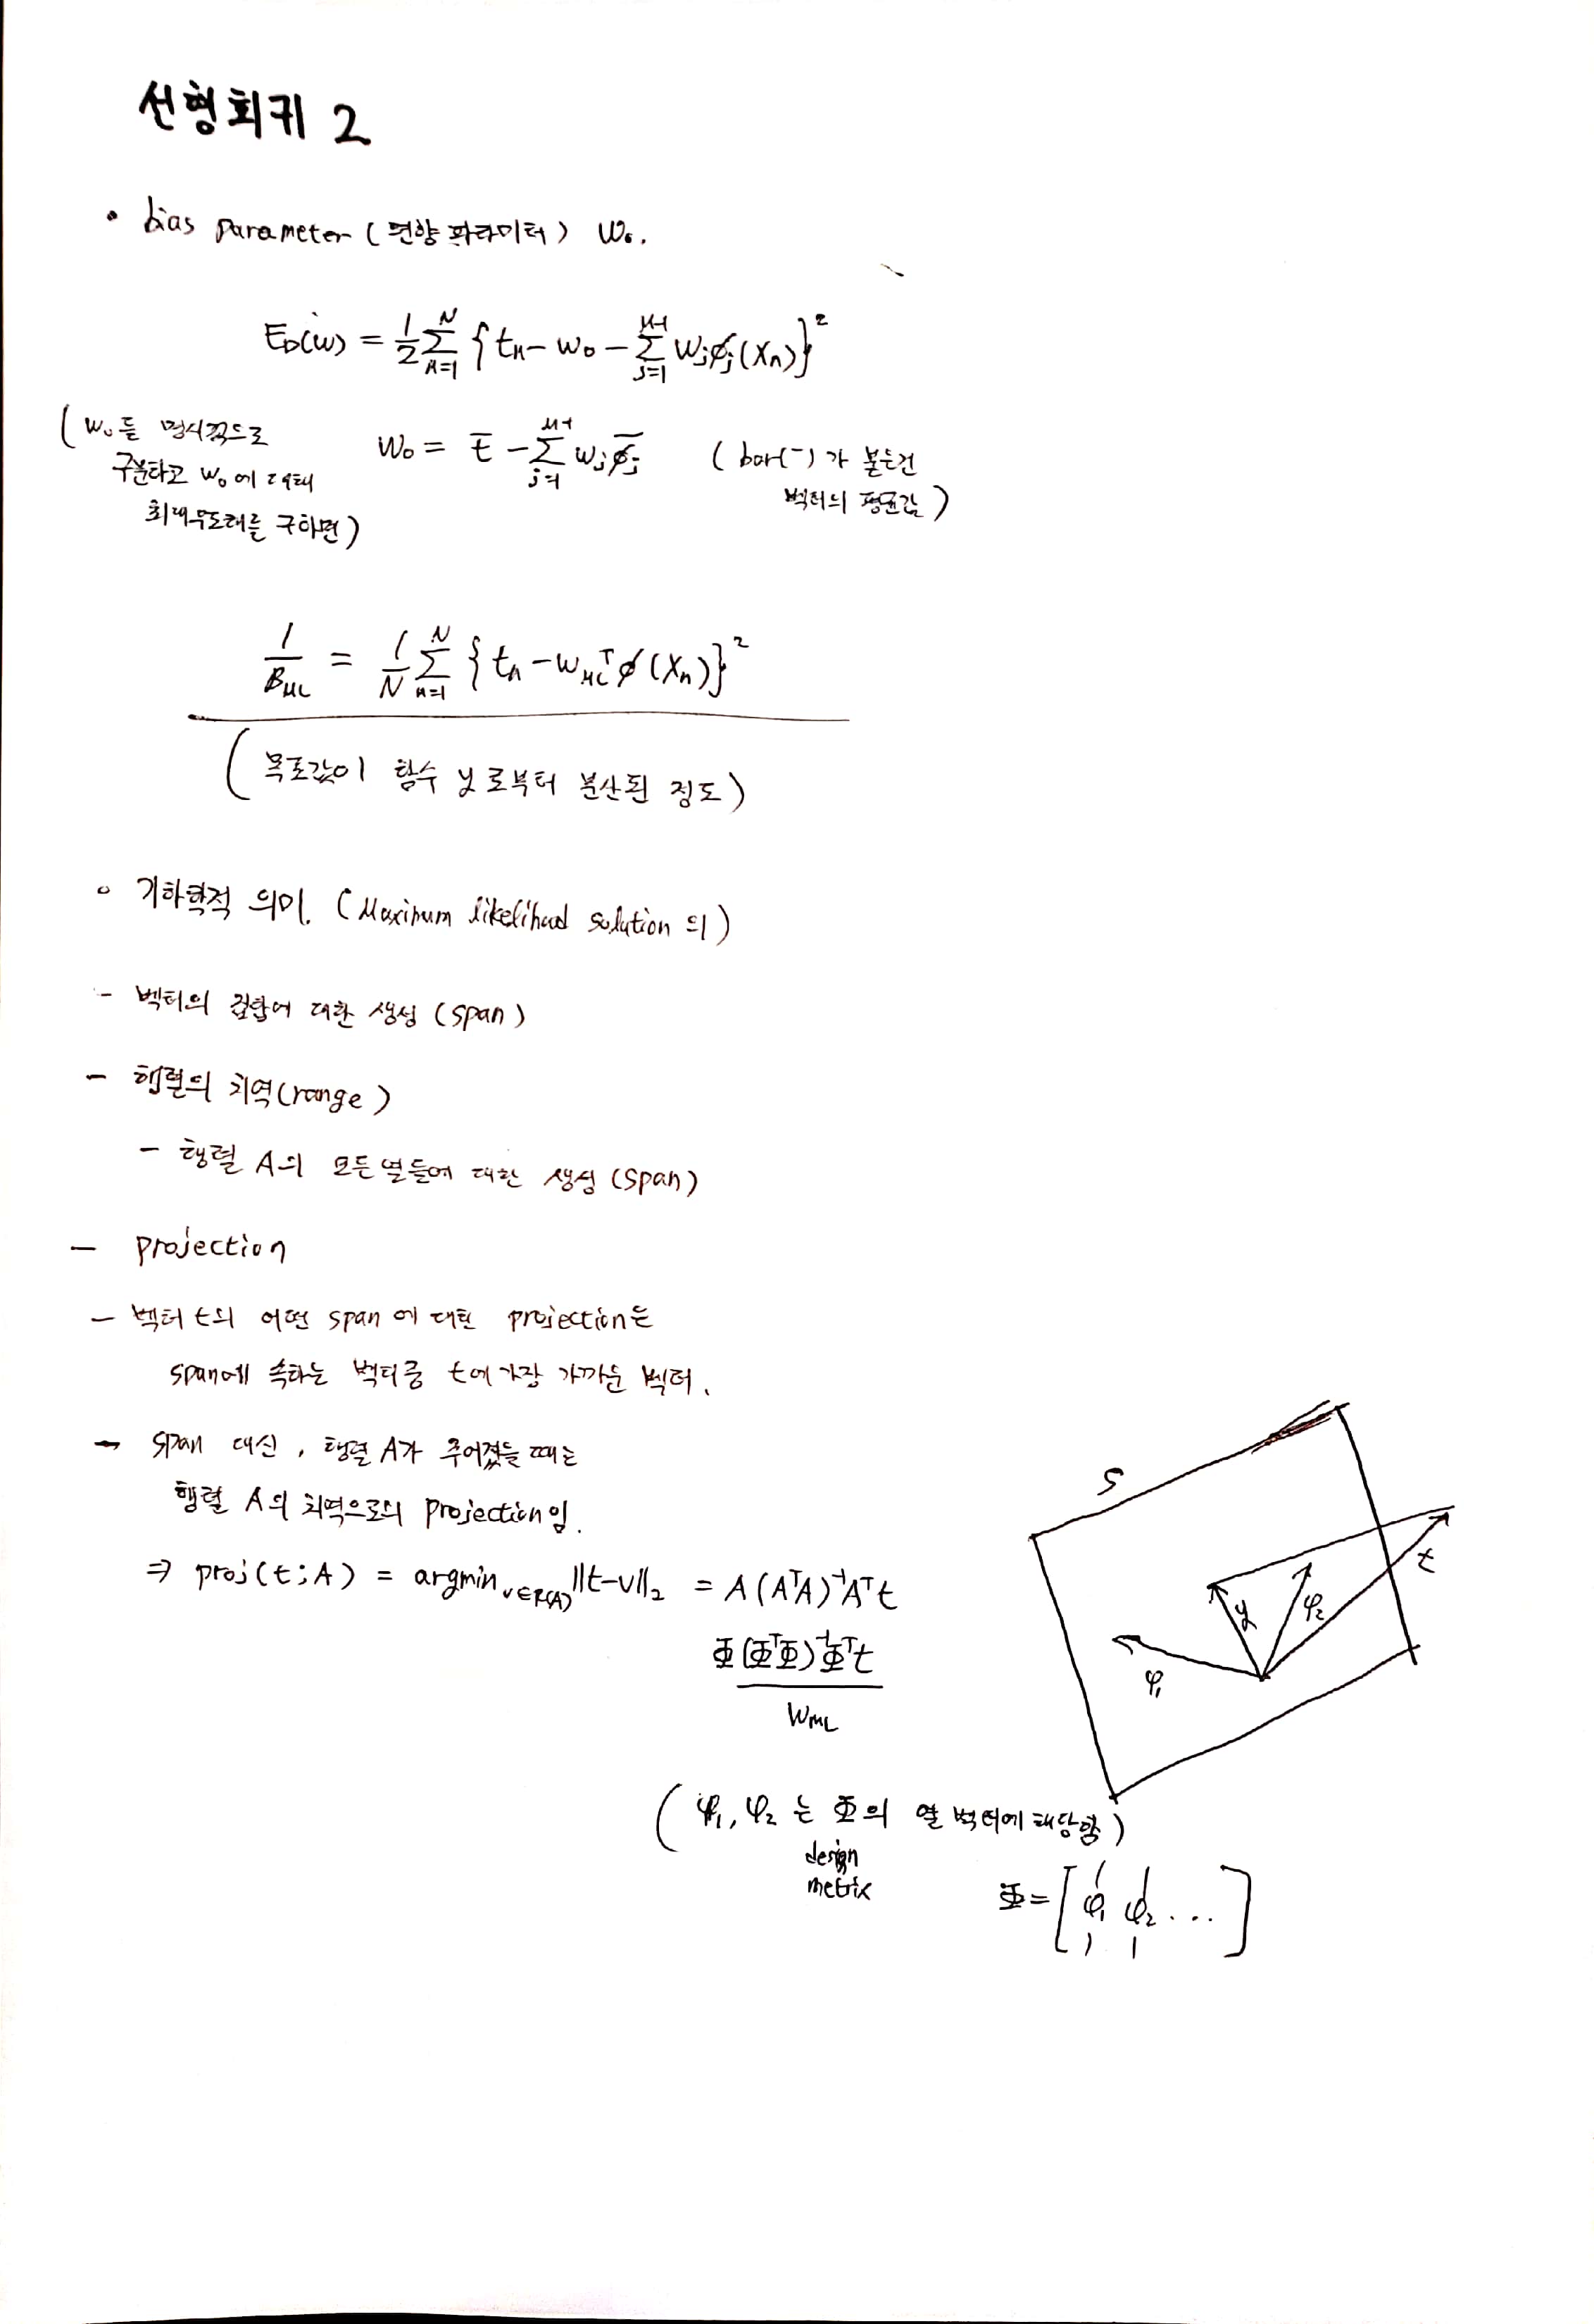 선형회귀 2
• bias parameter (편향 파라미터) w₀.
E_D(w) = 1/2 Σ_{n=1}^{N} { t_n - w₀ - Σ_{j=1}^{M-1} w_j ϕ_j (x_n) }²
( w₀를 명시적으로
구분하고 w₀에 대해
최대우도해를 구하면 )
w₀ = t̄ - Σ_{j=1}^{M-1} w_j ϕ̄_j
( bar(-)가 붙은건
벡터의 평균값 )
1/β_ML = 1/N Σ_{n=1}^{N} { t_n - w_ML^T ϕ (x_n) }²
( 목표값이 함수 y로부터 분산된 정도 )
• 기하학적 의미. ( Maximum likelihod solution 의 )
- 벡터의 집합에 대한 생성 (span)
- 행렬의 치역 (range)
- 행렬 A의 모든 열들에 대한 생성 (span)
- projection
- 벡터 t의 어떤 span 에 대한 projection은
span에 속하는 벡터중 t에 가장 가까운 벡터.
- span 대신, 행렬 A가 주어졌을 때는
행렬 A의 치역으로의 projection임.
⇒ proj(t;A) = argmin_{v∈R(A)} ||t-v||₂ = A(AᵀA)⁻¹Aᵀt
Φ(ΦᵀΦ)⁻¹Φᵀt
w_ML
S
t
y
φ₂
φ₁
( φ₁, φ₂ 는 Φ의 열 벡터에 해당함 )
design
metrix
Φ = [ φ₁ φ₂ ... ]